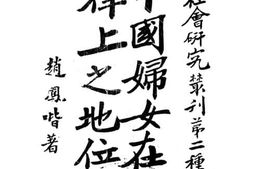 社會研究叢刊第二種
中國婦女在
律上之地位
趙鳳喈著